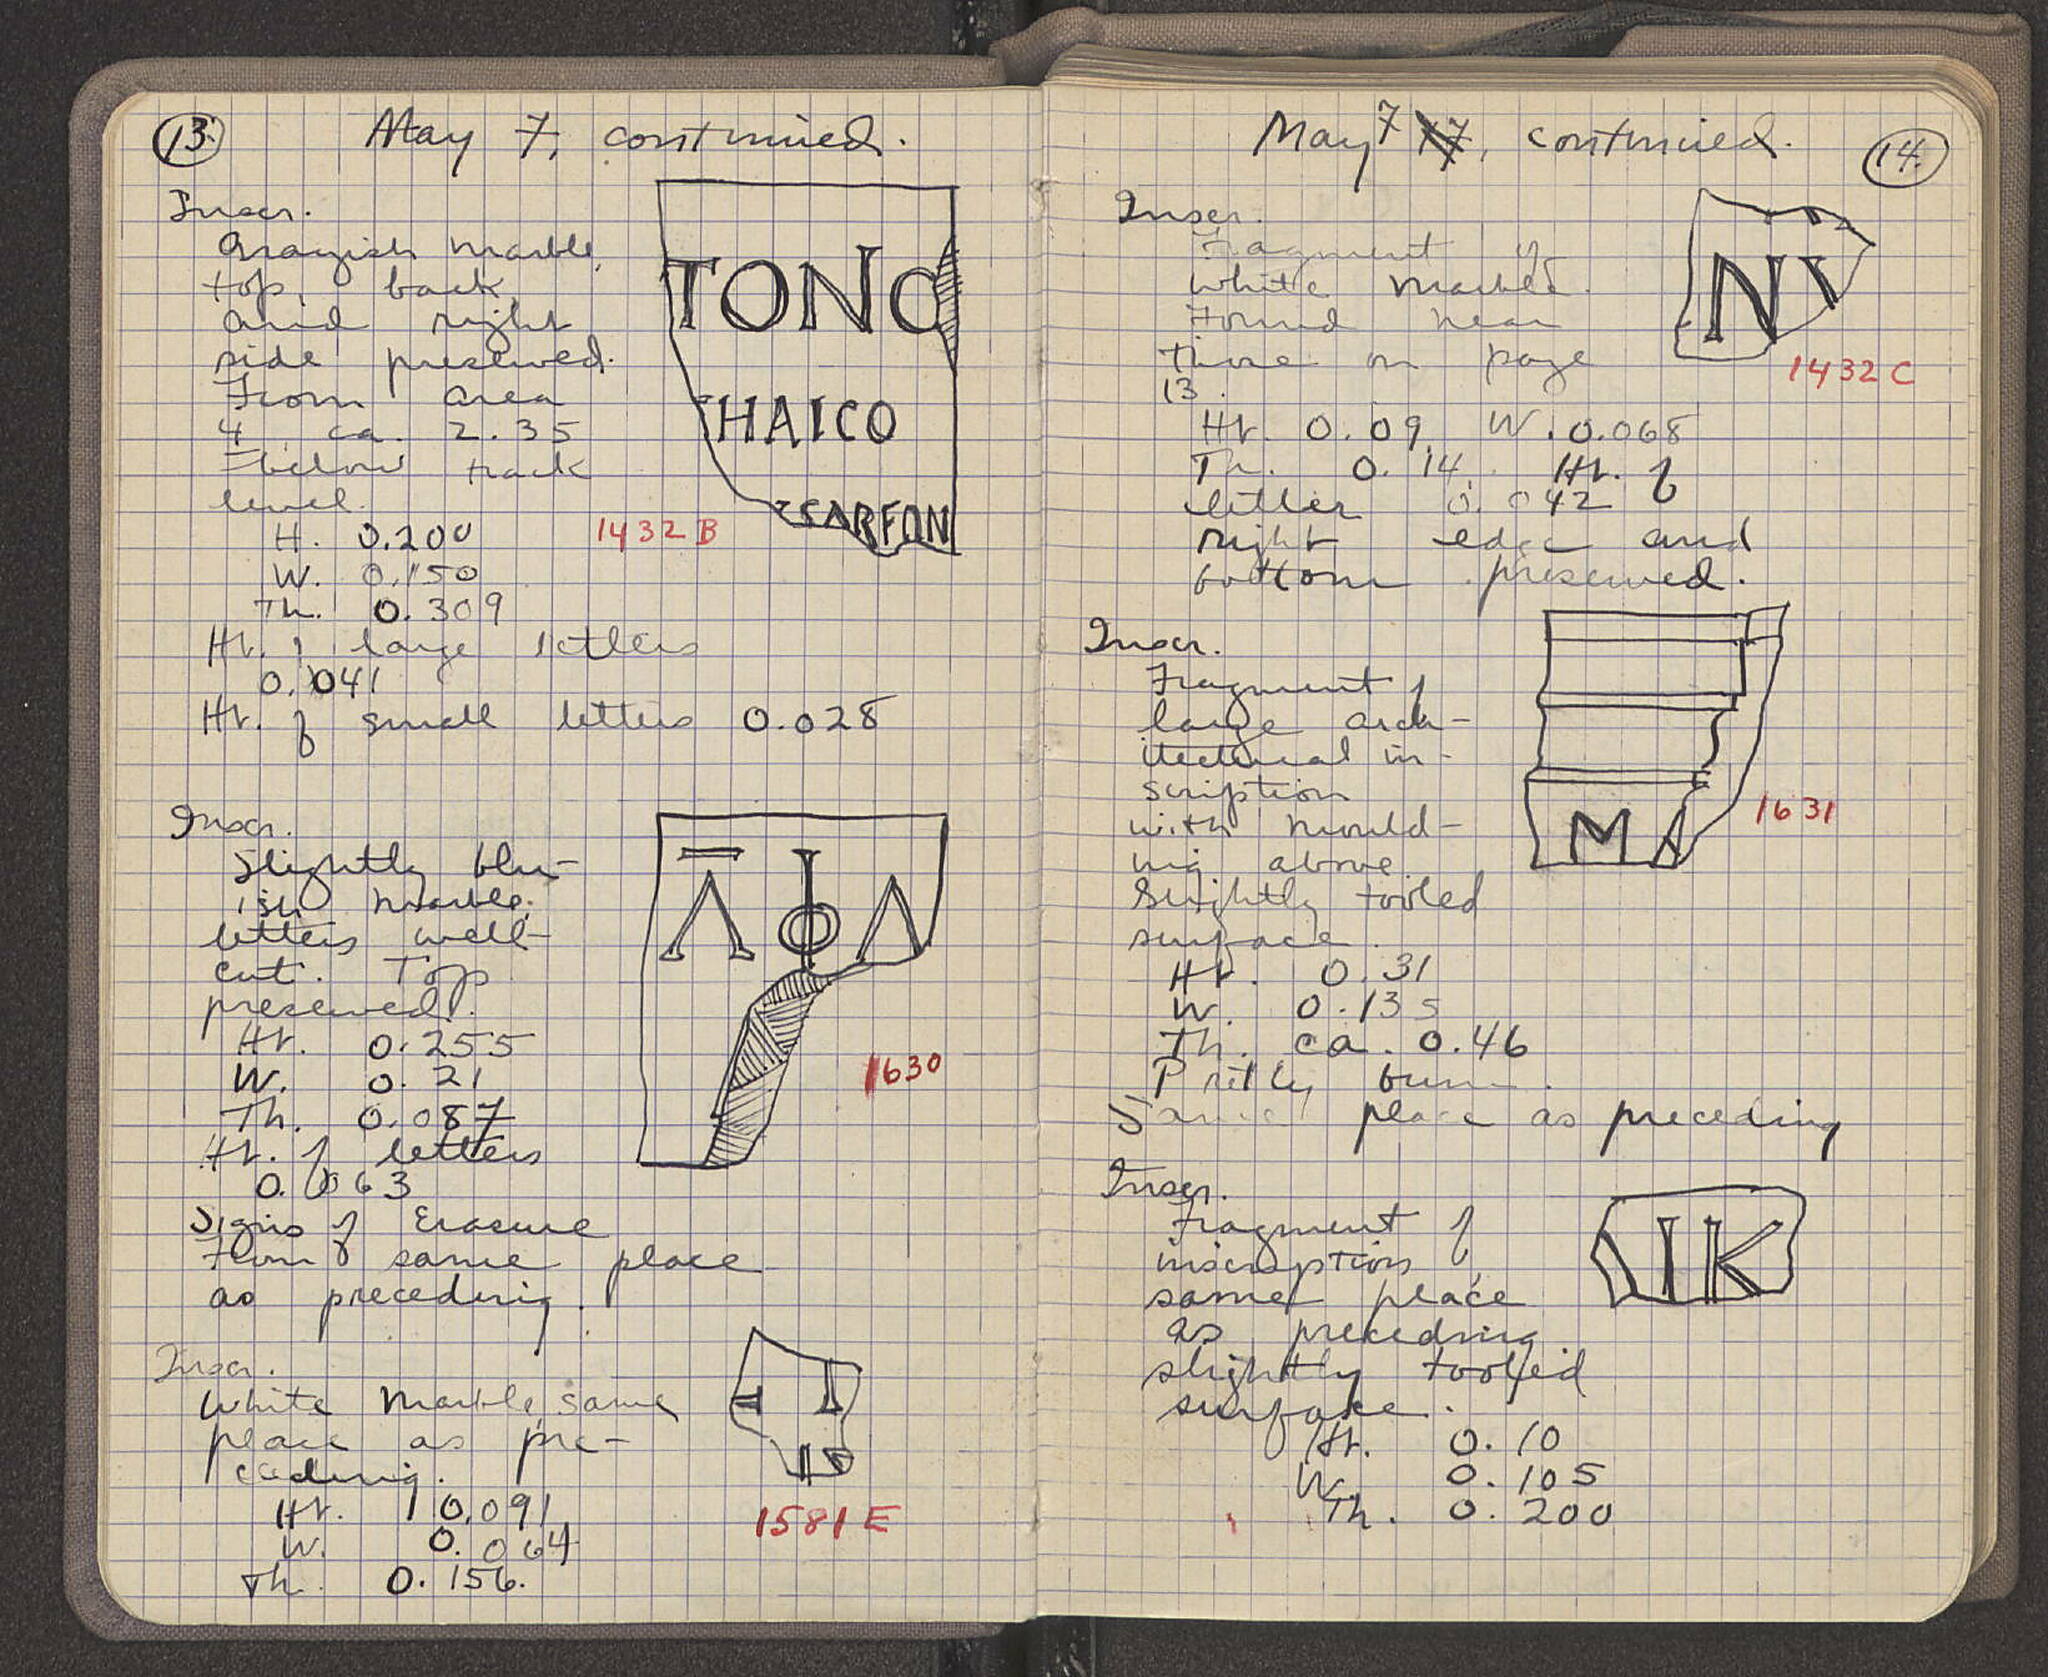 13.
May 7, continued.
Inscr.
Grayish marble,
top, back,
and right
side preserved.
From area
4 ca. 2.35
below track
level.
H. 0.200
W. 0.150
Th. 0.309
Ht. of large letters
0.041
Ht. of small letters 0.028
TONC
HAICO
1432 B
Inscr.
Slightly blu-
ish marble;
letters well-
cut. Top
preserved.
Ht. 0.255
W. 0.21
Th. 0.087
Ht. of letters
0.063
Signs of Erasure
From same place
as preceding.
Λ Φ Λ
1630
Inscr.
White marble, same
place as pre-
ceding.
Ht. 0.091
W. 0.064
Th. 0.156.
1581 E
May 7, continued.
14.
Inscr.
Fragment of
white marble.
Found near
those on page
13.
Ht. 0.09 W. 0.068
Th. 0.14. Ht. of
letter 0.042
right edge and
bottom preserved.
N
1432 C
Inscr.
Fragment of
large arch-
itectural in-
scription
with mould-
ing above.
Slightly tooled
surface.
Ht. 0.31
W. 0.135
Th. ca. 0.46
Same place as preceding
MA
1631
Inscr.
Fragment of
inscription
same place
as preceding
slightly tooled
surface.
Ht. 0.10
W. 0.105
Th. 0.200
IK